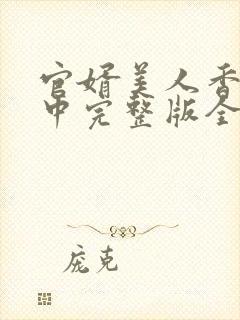 官婿美人香
中完整版全
庞克